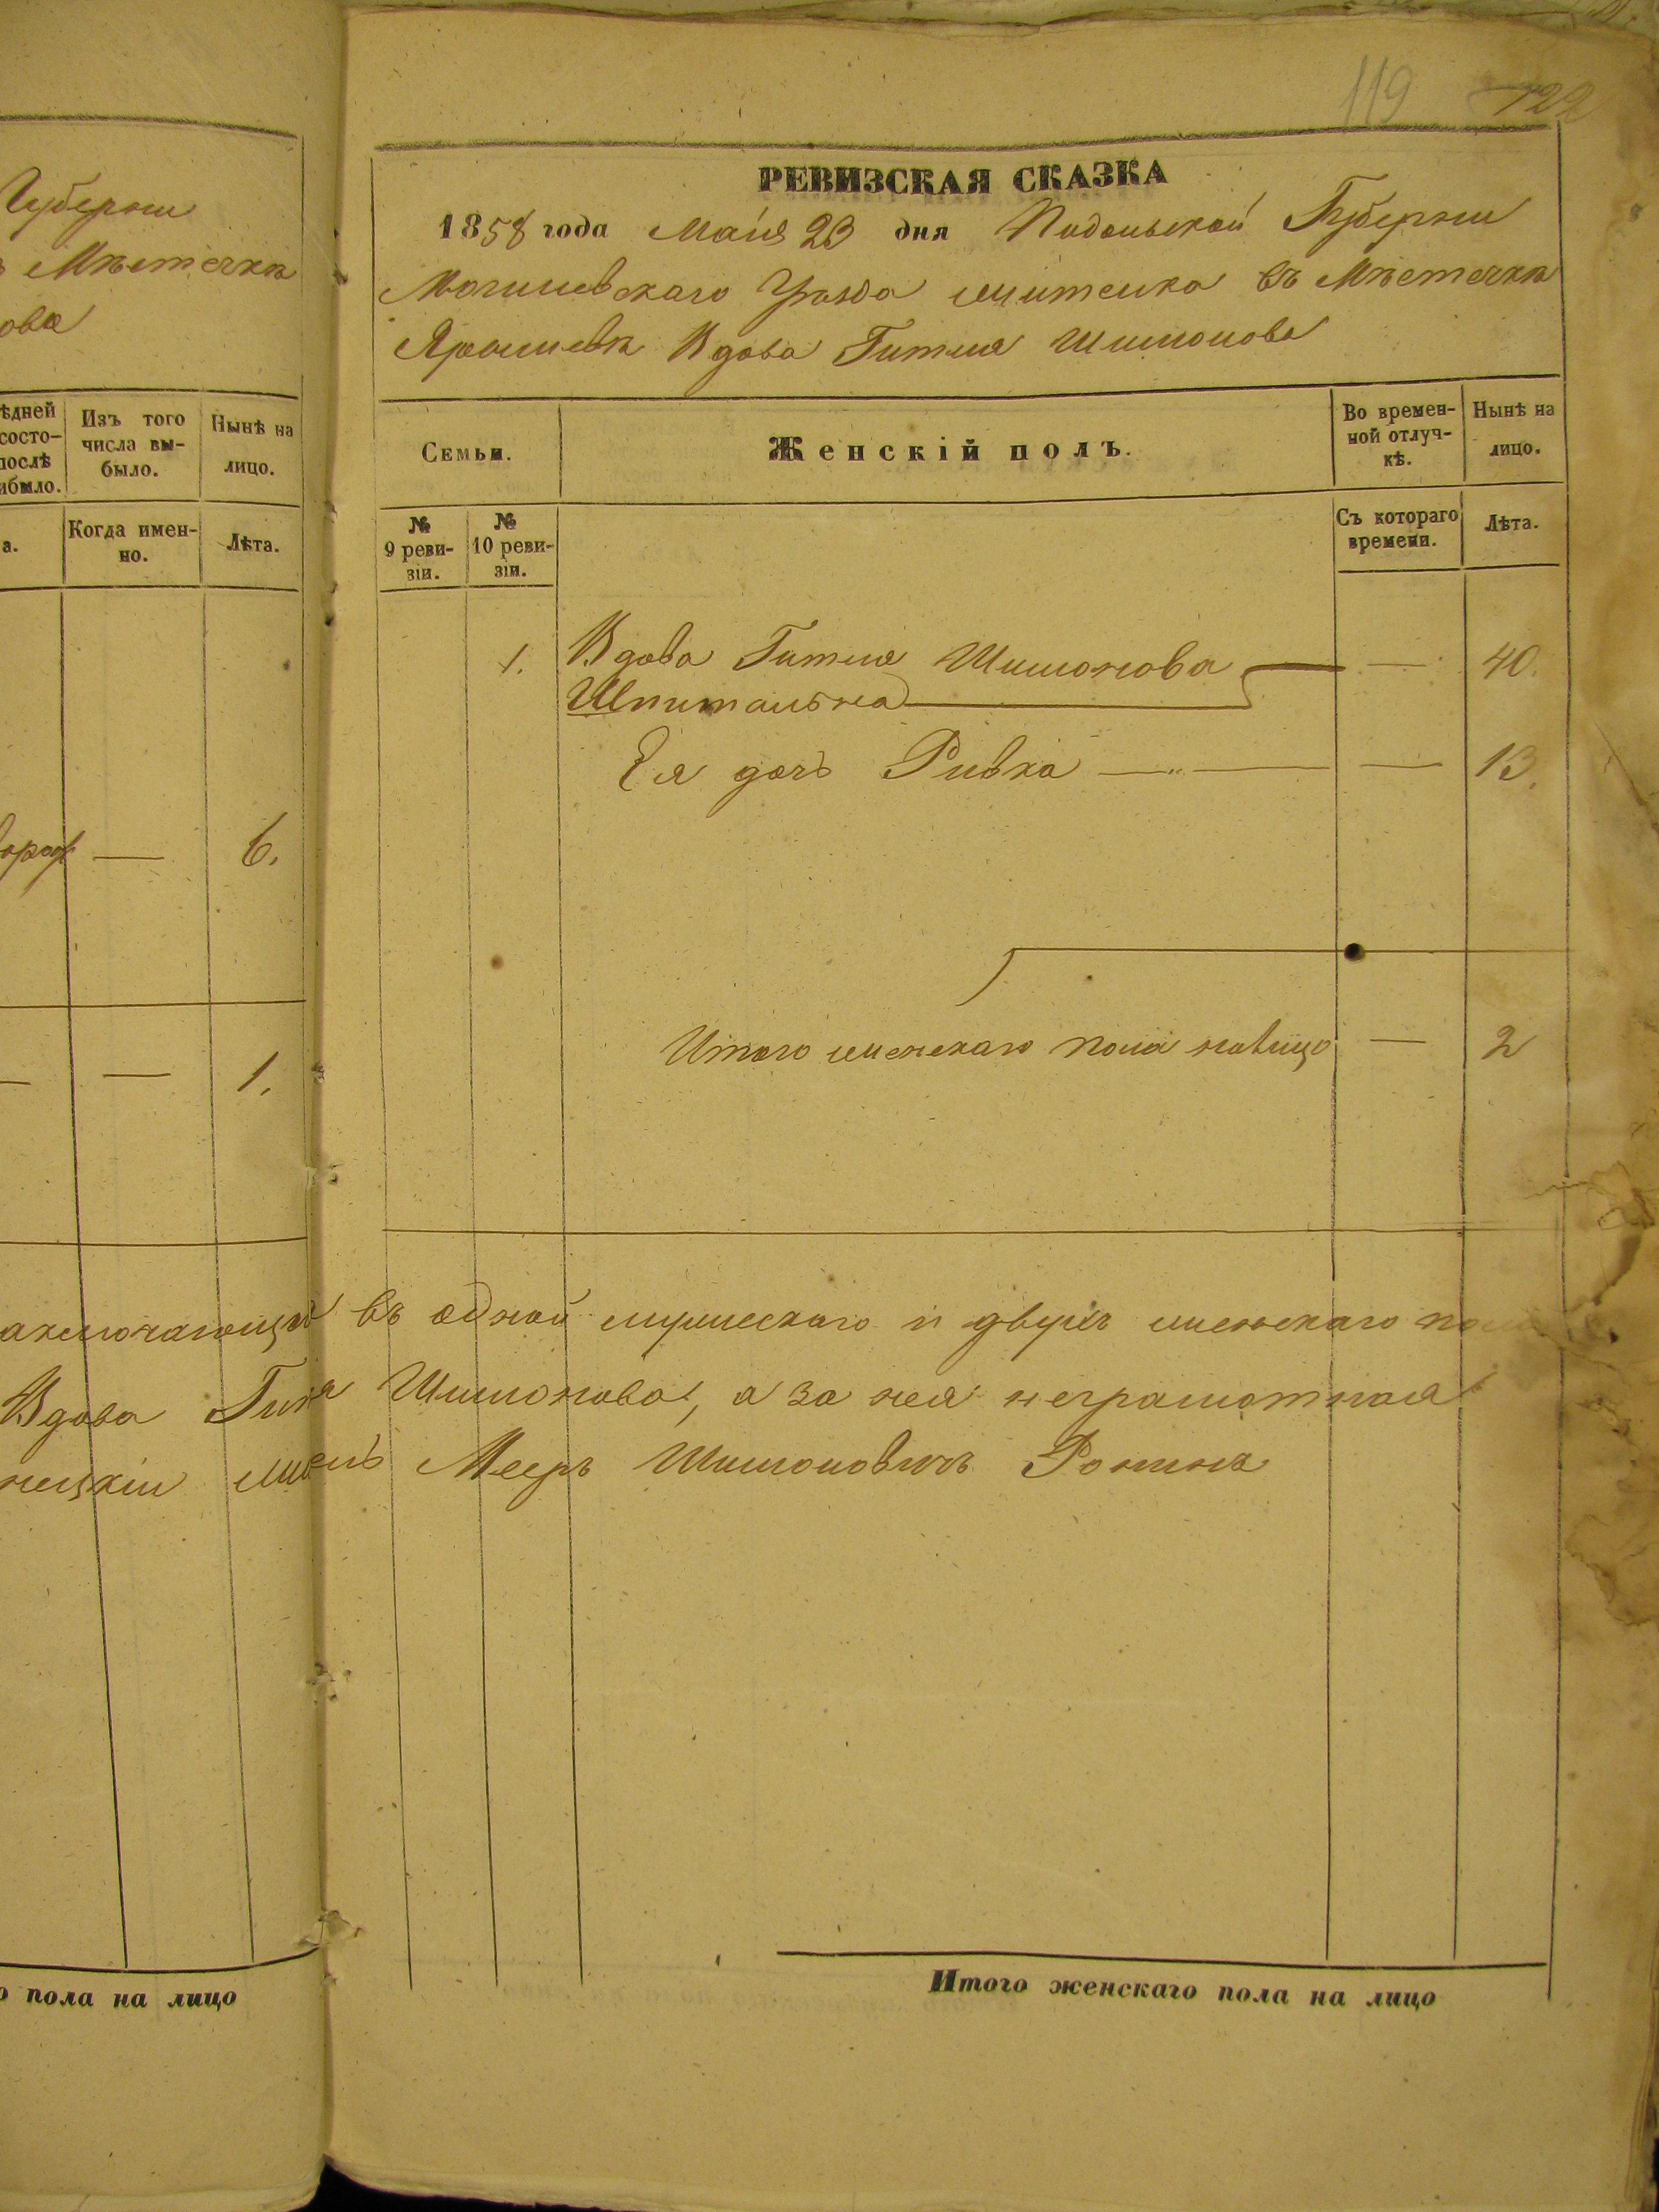 119 122
Губернии
Мѣстечкѣ
ова
ѣдней
состо-
послѣ
ибыло.
Изъ того
числа вы-
было.
Нынѣ на
лицо.
а.
Когда имен-
но.
Лѣта.
— 6.
— — 1.
РЕВИЗСКАЯ СКАЗКА
1858 года Маія 23 дня Подольской Губернии
Могилевскаго Уѣзда жителка въ Мѣстечкѣ
Ярышевѣ Вдова Гитля Шимонова
Семьи.
Женскій полъ.
Во времен-
ной отлуч-
кѣ.
Нынѣ на
лицо.
№
9 реви-
зіи.
№
10 реви-
зіи.
Съ котораго
времени.
Лѣта.
1. Вдова Гитля Шимонова — — 40.
Шпитальна
Ея дочь Ривка — „ — — 13.
Итого женскаго пола налицо — 2
аключающая въ одной мужескаго и двухъ женскаго
Вдова Шимонова, а за нея неграмотная
Мееръ Шимоновичъ
о пола на лицо
Итого женскаго пола на лицо